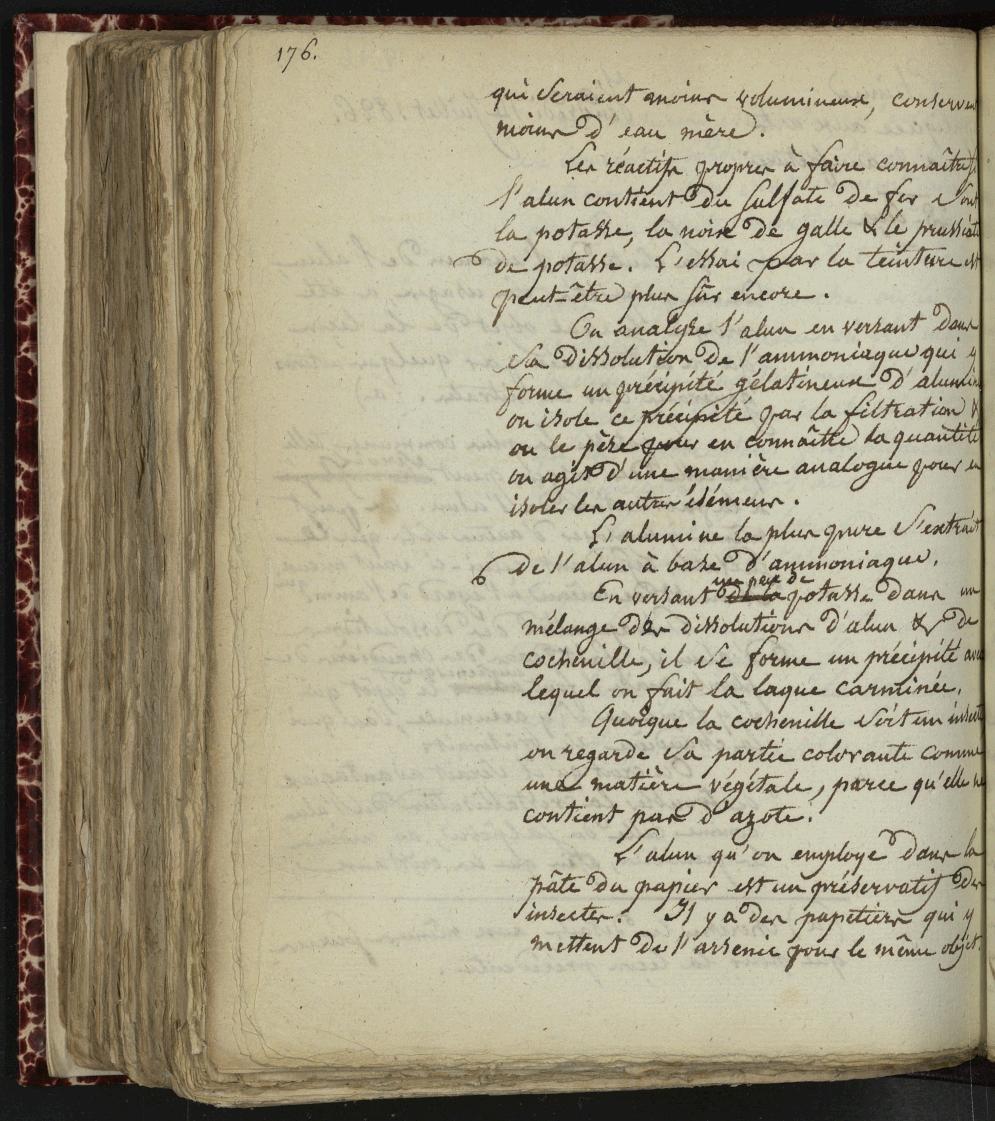 176.
qui seraient moins volumineux, conserven
moins d'eau mère.
Les réactifs propres à faire connaître si
l'alun contient du sulfate de fer sont
la potasse, la noix de galle & le prussiate
de potasse. L'essai par la teinture est
peut-être plus sûr encore.
On analyse l'alun en versant dans
sa dissolution de l'ammoniaque qui y
forme un précipité gélatineux d'alumine
on isole ce précipité par la filtration &
on le pèse pour en connaître la quantité
on agit d'une manière analogue pour en
isoler les autres élémens.
L'alumine la plus pure s'extrait
de l'alun à base d'ammoniaque.
un peu de
En versant de la potasse dans un
mélange des dissolutions d'alun & de
cochenille, il se forme un précipité avec
lequel on fait la laque carminée.
Quoique la cochenille soit un insecte
on regarde sa partie colorante comme
une matière végétale, parce qu'elle ne
contient pas d'azote.
L'alun qu'on employe dans la
pâte du papier est un préservatif des
insectes. Il y a des papetiers qui y
mettent de l'arsenic pour le même objet.